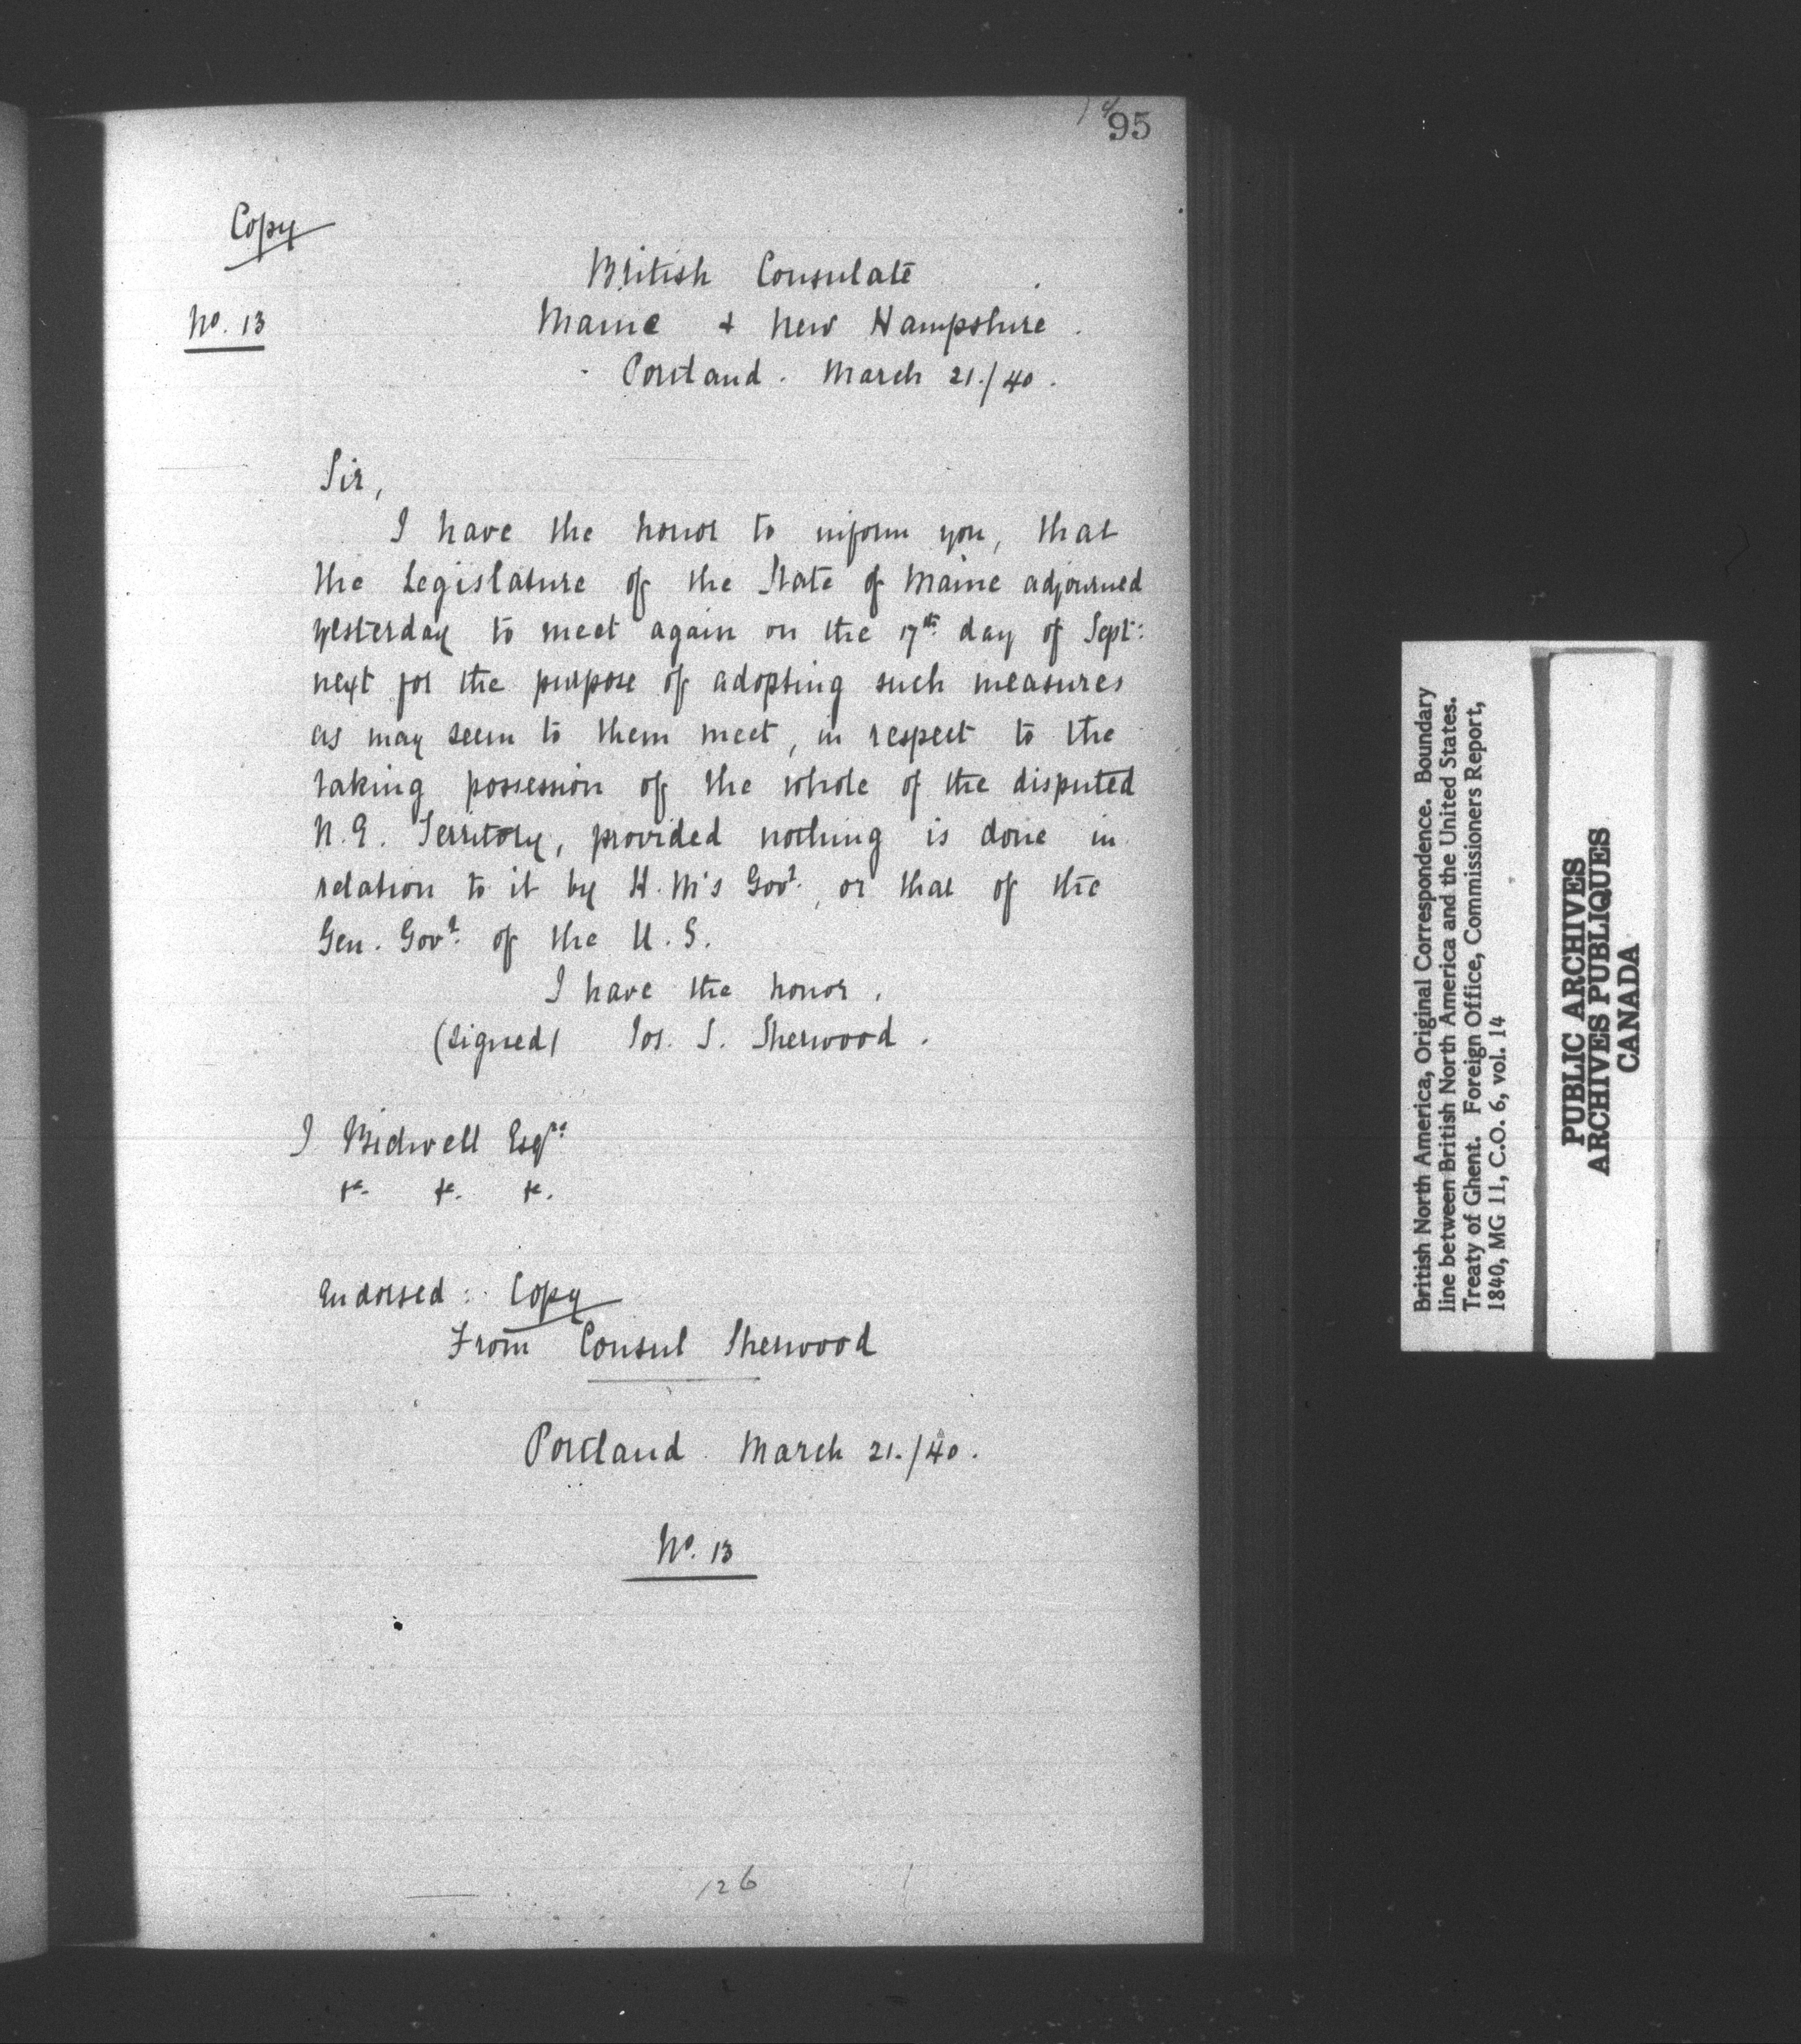 95
Copy
British Consulate
No. 13
Maine & New Hampshire.
Portland. March 21./40.
Sir,
I have the honor to inform you, that
the Legislature of the State of Maine adjourned
yesterday to meet again on the 17th day of Sept:
next for the purpose of adopting such measures
as may seem to them meet, in respect to the
taking possession of the whole of the disputed
N.E. Territory, provided nothing is done in
relation to it by H.M's Govt. or that of the
Gen. Govt. of the U.S.
I have the honor.
(signed) Jos. T. Sherwood.
J Bidwell Esqre
&c. &c. &c.
Endorsed: Copy
From Consul Sherwood
Portland. March 21./40.
No. 13
126
British North America, Original Correspondence. Boundary
line between British North America and the United States.
Treaty of Ghent. Foreign Office, Commissioners Report,
1840, MG 11, C.O. 6, vol. 14
PUBLIC ARCHIVES
ARCHIVES PUBLIQUES
CANADA